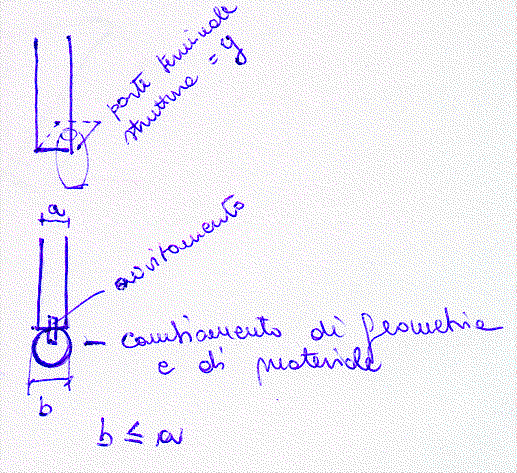 parte terminale
struttura = g
a
avvitamento
cambiamento di geometria
e di materiale
b
b ≤ a